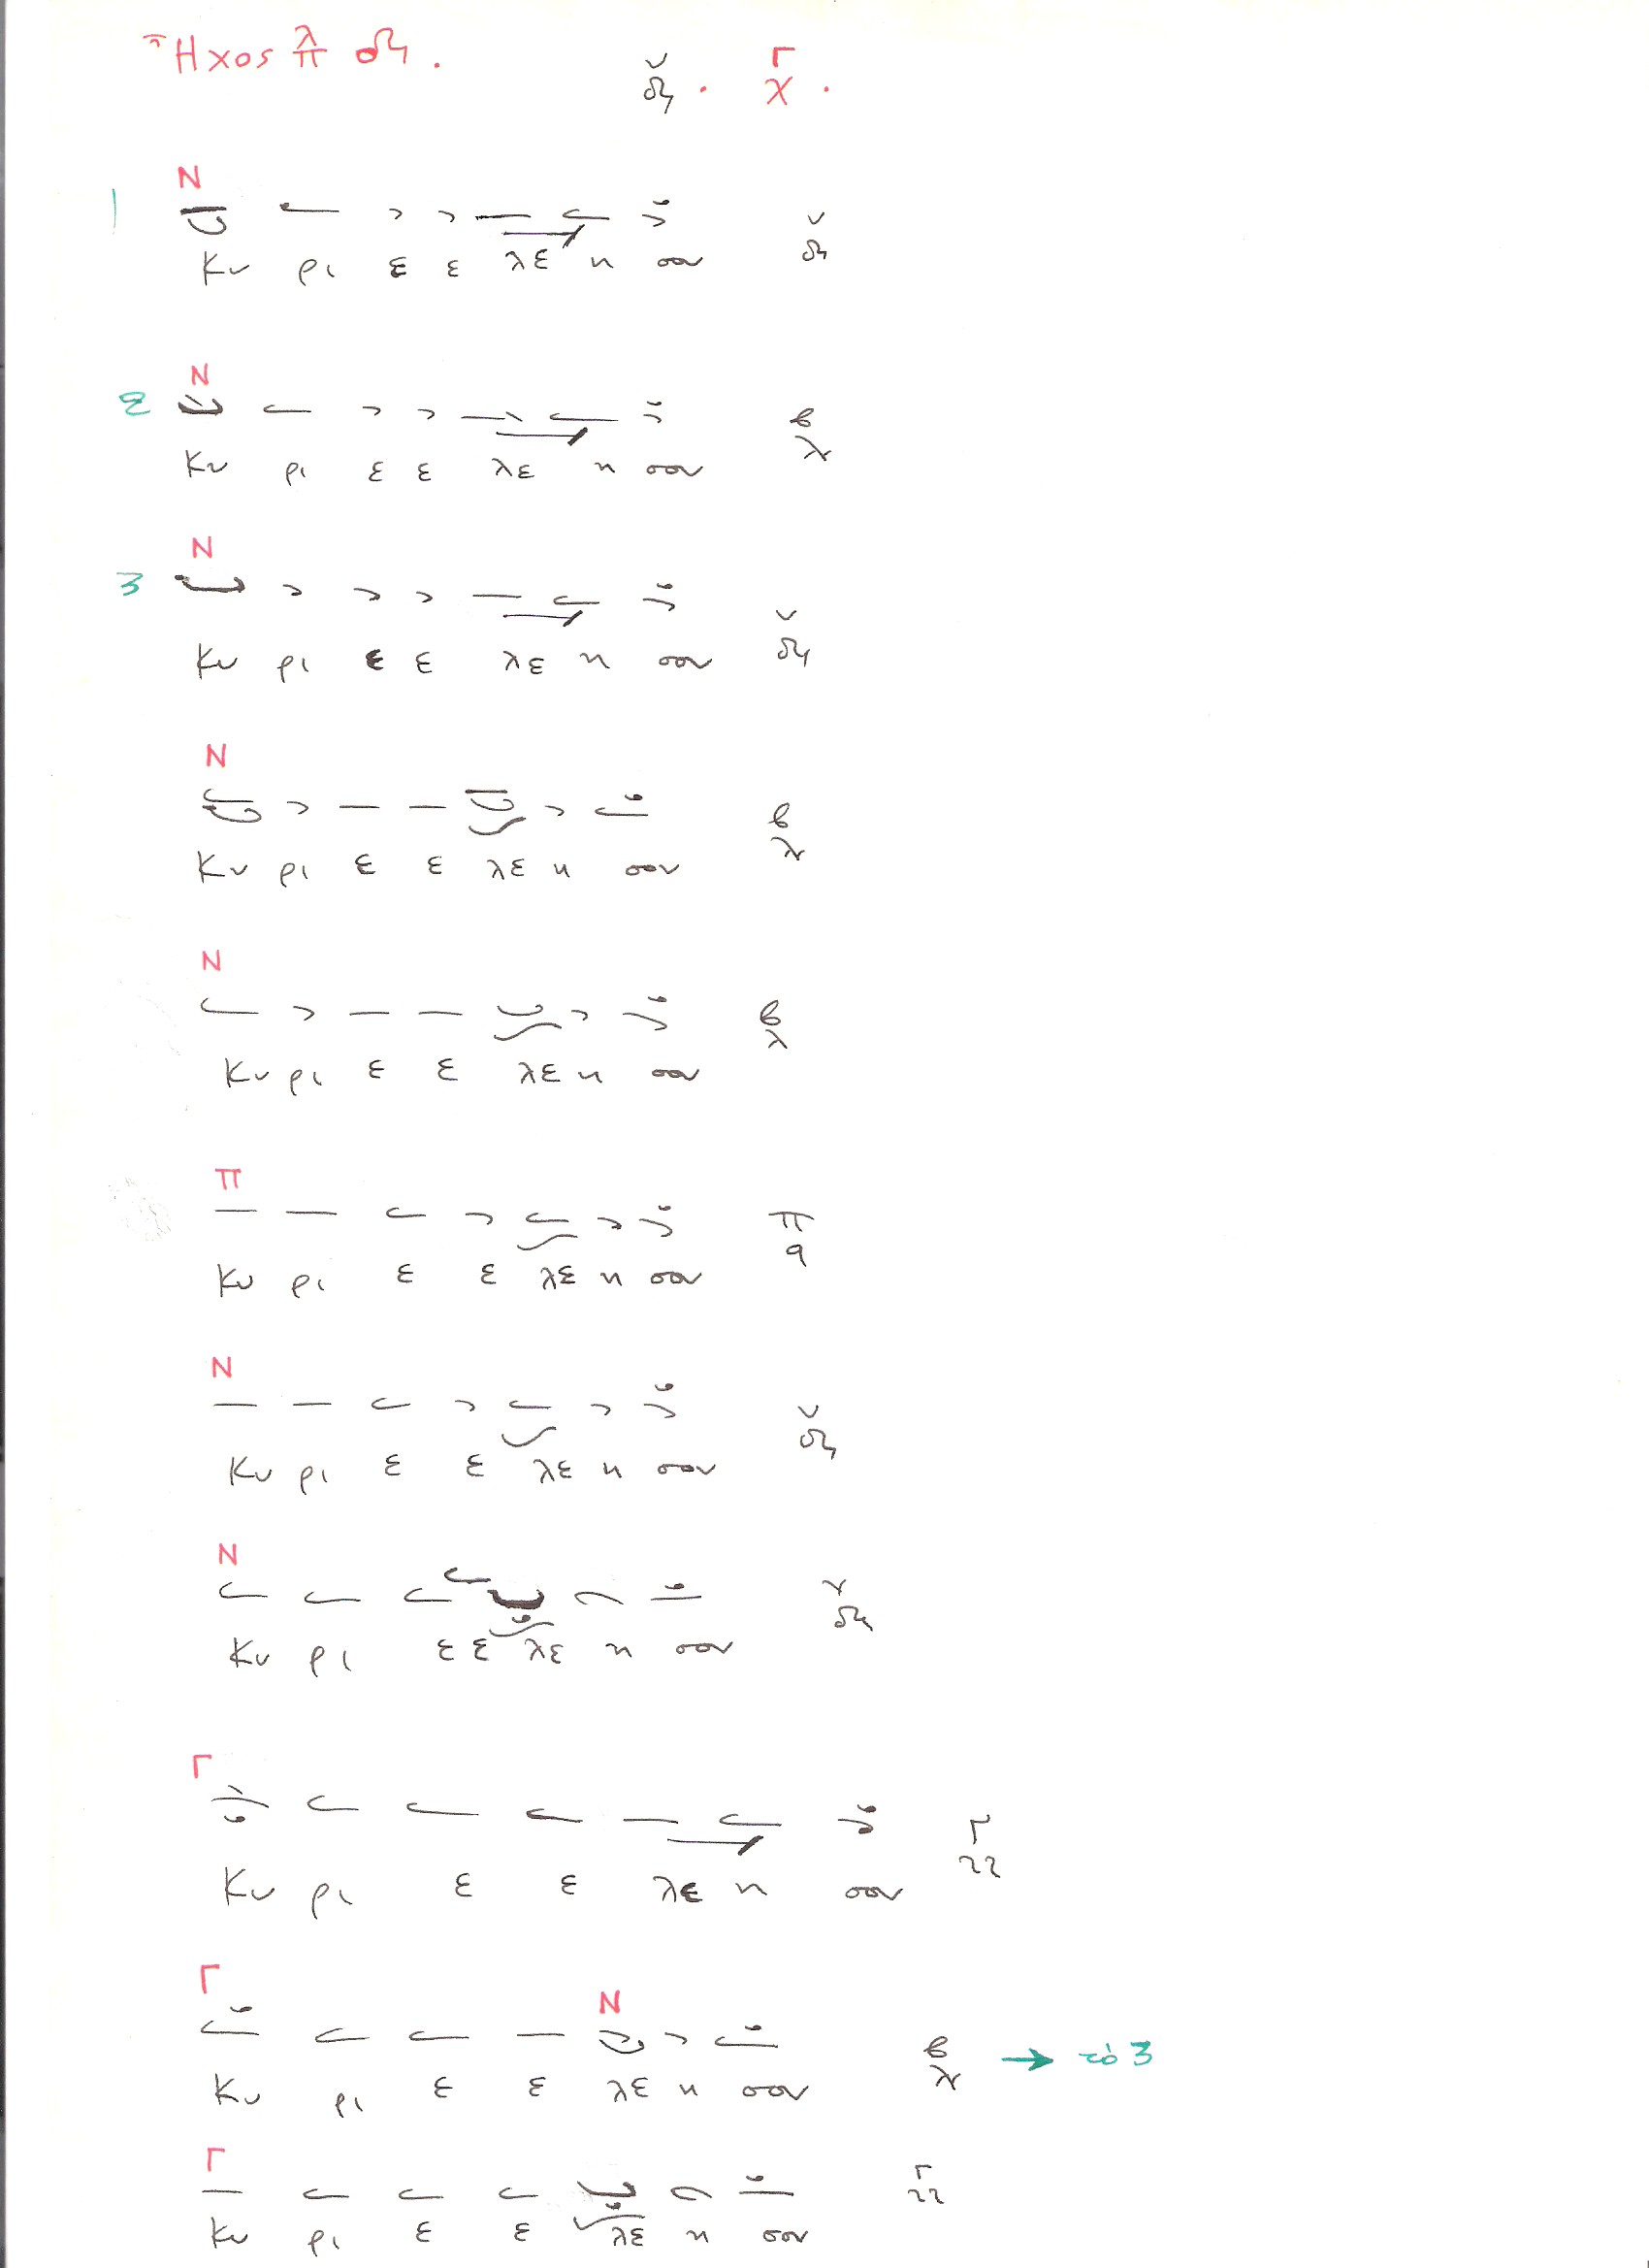 Ἦχος λ π δη .
ν δη . Γ χ .
Ν
1
Κυ ρι ε ε λε η σον ν δη
Ν
2
Κυ ρι ε ε λε η σον β λ
Ν
3
Κυ ρι ε ε λε η σον ν δη
Ν
Κυ ρι ε ε λε η σον β λ
Ν
Κυ ρι ε ε λε η σον β λ
Π
Κυ ρι ε ε λε η σον π q
Ν
Κυ ρι ε ε λε η σον ν δη
Ν
Κυ ρι ε ε λε η σον ν δη
Γ
Κυ ρι ε ε λε η σον Γ
Γ Ν
Κυ ρι ε ε λε η σον β λ → τό 3
Γ
Κυ ρι ε ε λε η σον Γ